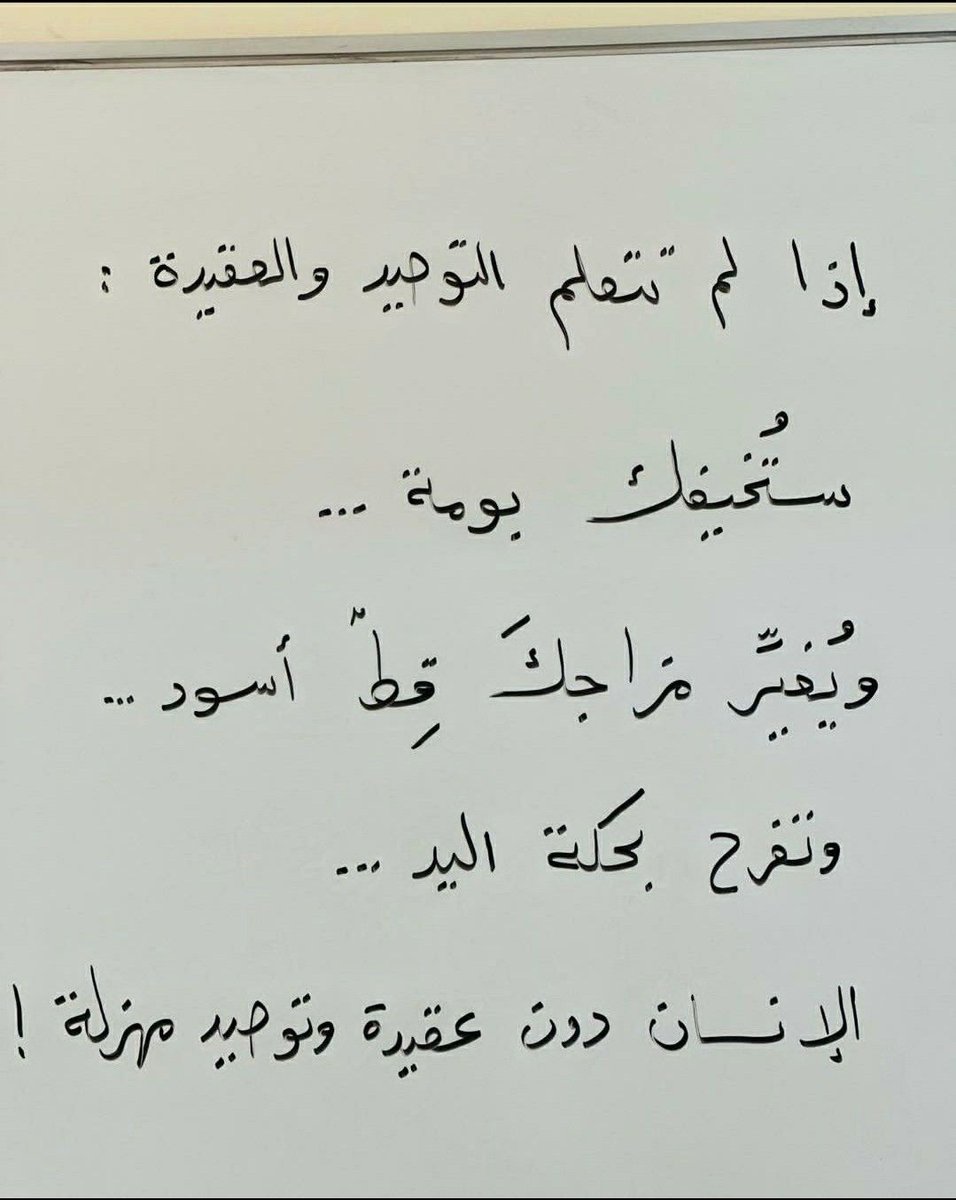 إذا لم تتعلم التوحيد والعقيدة :
ستُخيفك بومة ...
ويُغيِّر مزاجكَ قِطّ أسود ...
وتفرح بحكة اليد ...
الإنسان دون عقيدة وتوحيد مهزلة !